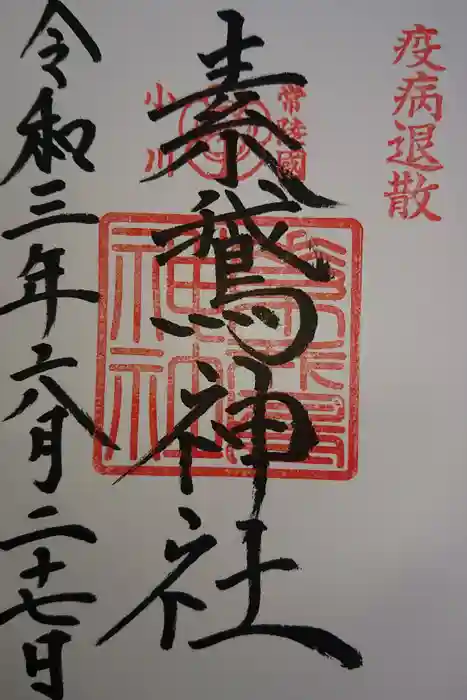 疫病退散
常陸國
小川
素鵞神社
令和三年六月二十七日